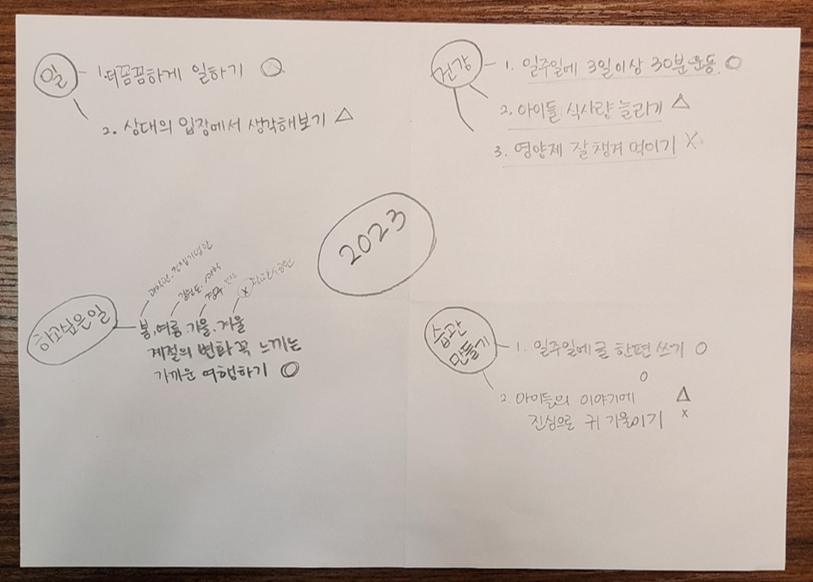 일
1. 더꼼꼼하게 일하기 ○
2. 상대의 입장에서 생각해보기 △
건강
1. 일주일에 3일이상 30분 운동 ○
2. 아이들 식사량 늘리기 △
3. 영양제 잘 챙겨 먹이기 X
2023
하고싶은일
X
봄, 여름, 가을, 겨울
계절의 변화 꼭 느끼는
가까운 여행하기 ○
습관
만들기
1. 일주일에 글 한편 쓰기 ○
○
2. 아이들의 이야기에 △
진심으로 귀 기울이기 x